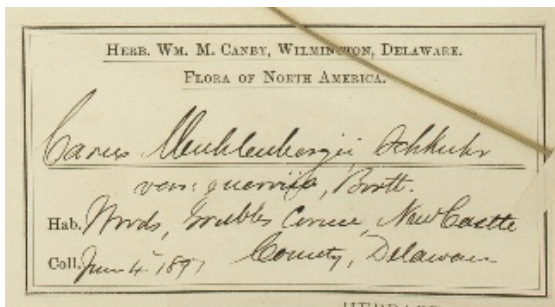 HERB. WM. M. CANBY, WILMINGTON, DELAWARE.
FLORA OF NORTH AMERICA.
Carex Muhlenbergii, Schkuhr
var: enervis, Boott.
Hab. Woods, Grubbs Corner, New Castle
Coll. June 4 1897 County, Delaware